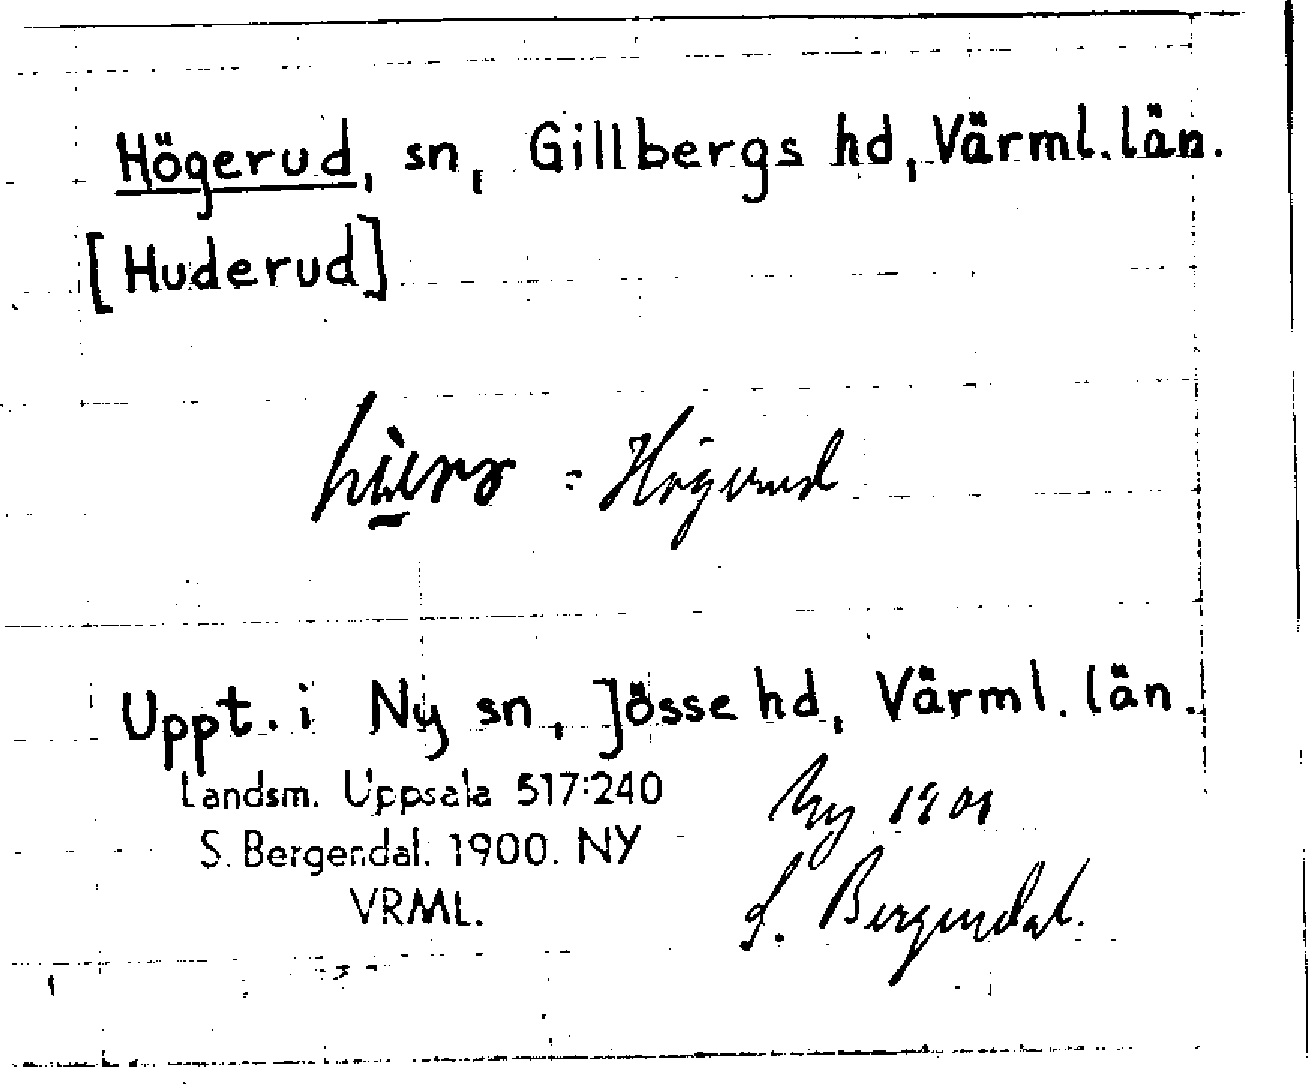 Högerud, sn, Gillbergs hd, Värml. län.
[Huderud]
= Högerud
Uppt. i Ny sn, Jösse hd, Värml. län.
Landsm. Uppsala 517:240
S. Bergendal. 1900. NY
VRML.
Ny 1900
S. Bergendal.